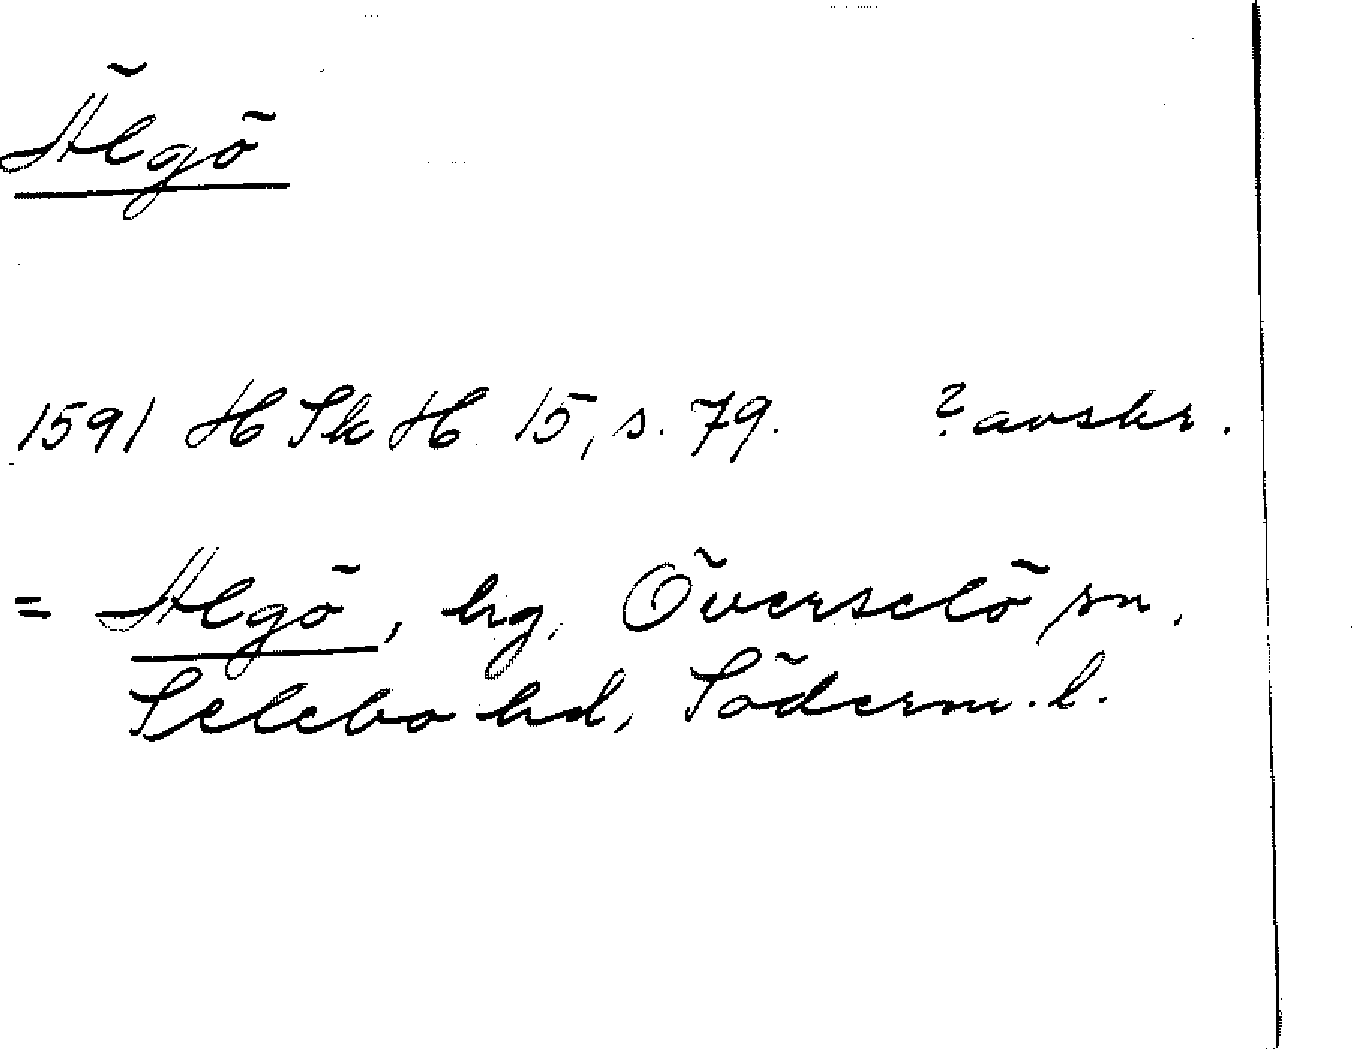 Älgö
1591 HSkH 15, s. 79. ? avskr.
= Algö, hg, Överselö sn.
Selebo hd, Söderm. l.